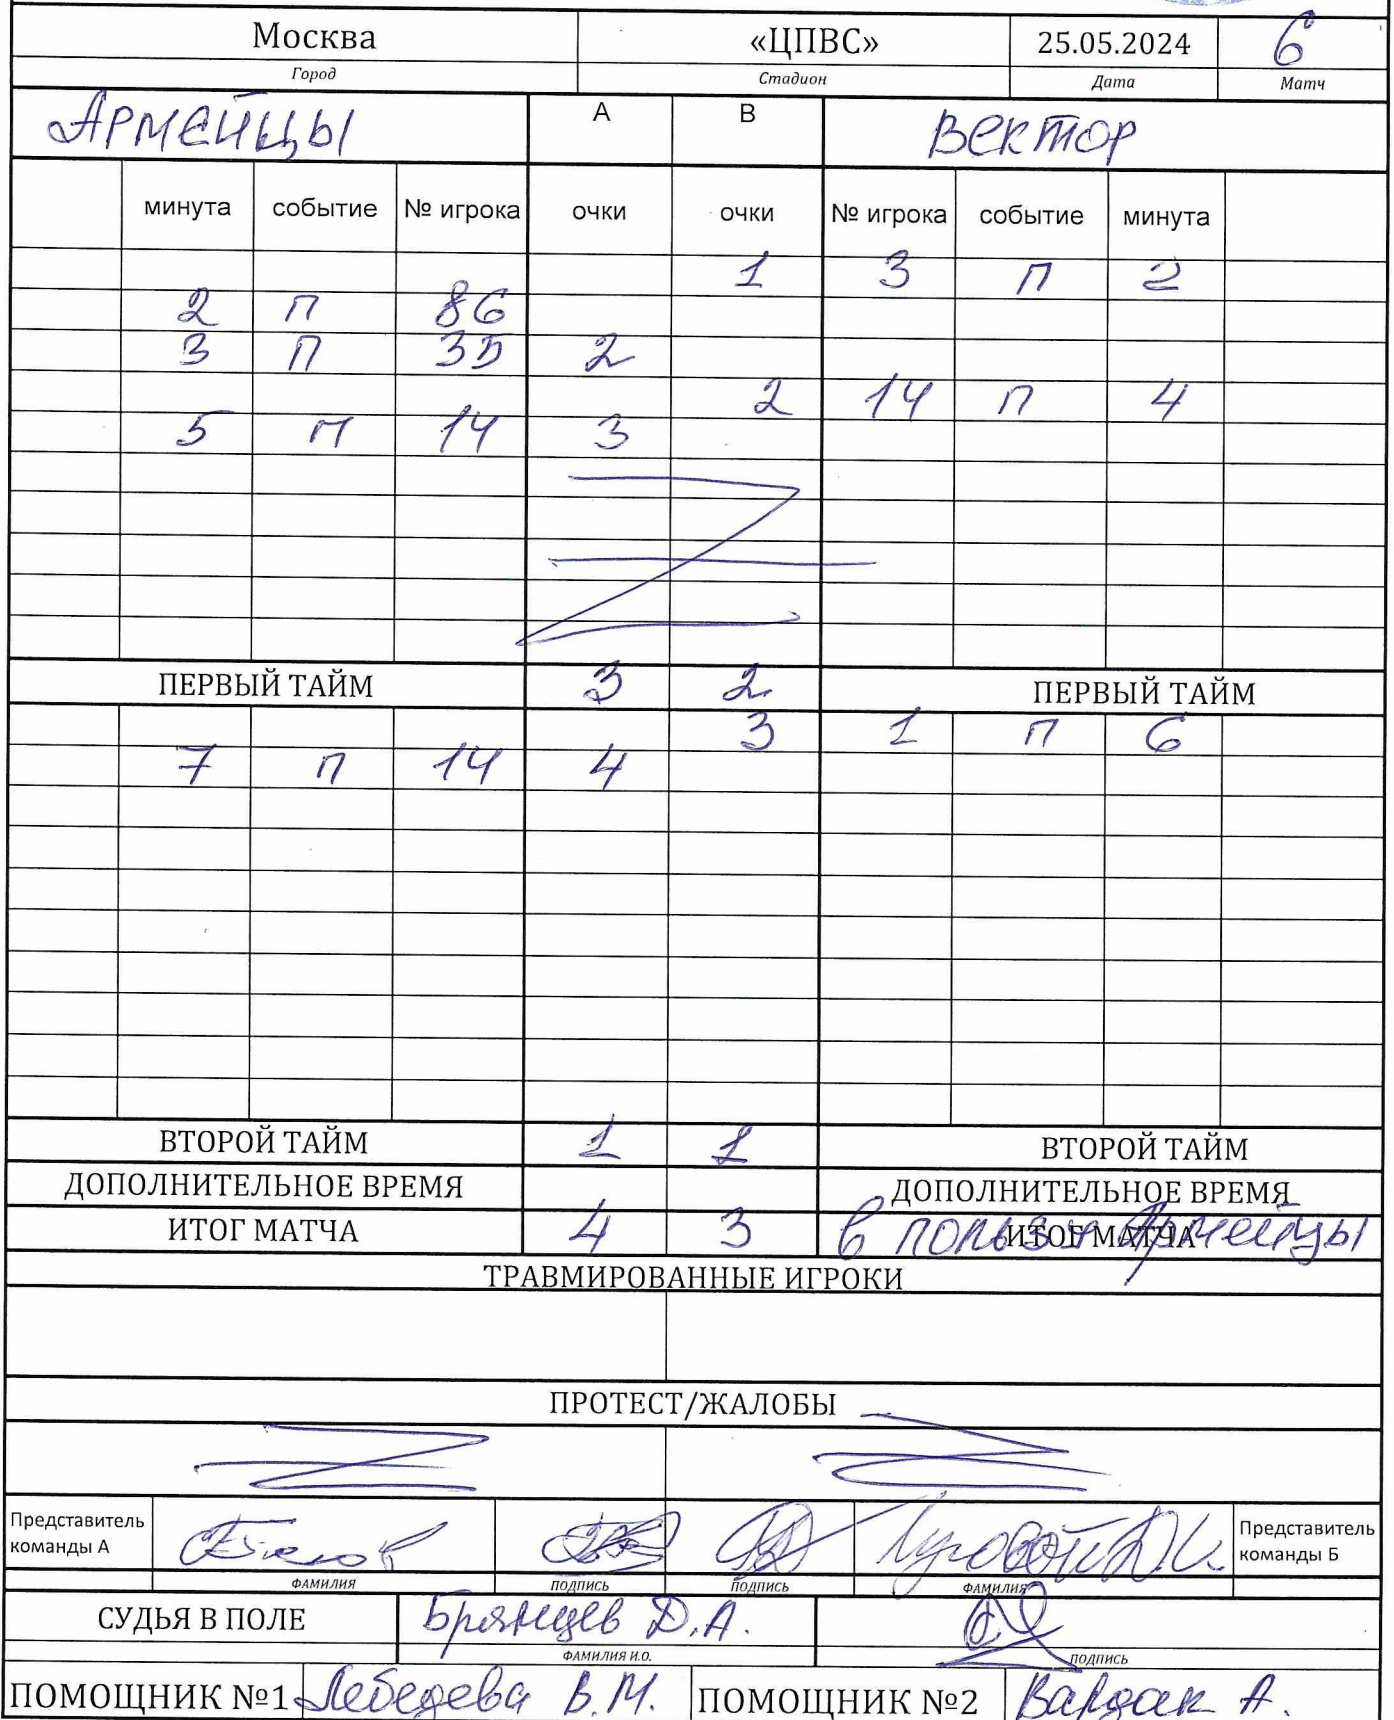 Москва «ЦПВС» 25.05.2024 6
Город Стадион Дата Матч
Армейцы А В Вектор
минута событие № игрока очки очки № игрока событие минута
1 3 п 2
2 п 86
3 п 35 2
2 14 п 4
5 п 14 3
ПЕРВЫЙ ТАЙМ 3 2 ПЕРВЫЙ ТАЙМ
3 1 п 6
7 п 14 4
ВТОРОЙ ТАЙМ 1 1 ВТОРОЙ ТАЙМ
ДОПОЛНИТЕЛЬНОЕ ВРЕМЯ ДОПОЛНИТЕЛЬНОЕ ВРЕМЯ
ИТОГ МАТЧА 4 3 ИТОГ МАТЧА
в пользу Армейцы
ТРАВМИРОВАННЫЕ ИГРОКИ
ПРОТЕСТ/ЖАЛОБЫ
Представитель команды А Представитель команды Б
ФАМИЛИЯ ПОДПИСЬ ПОДПИСЬ ФАМИЛИЯ
СУДЬЯ В ПОЛЕ Брянцев Д.А.
ФАМИЛИЯ И.О. ПОДПИСЬ
ПОМОЩНИК №1 Лебедева В.М. ПОМОЩНИК №2 А.